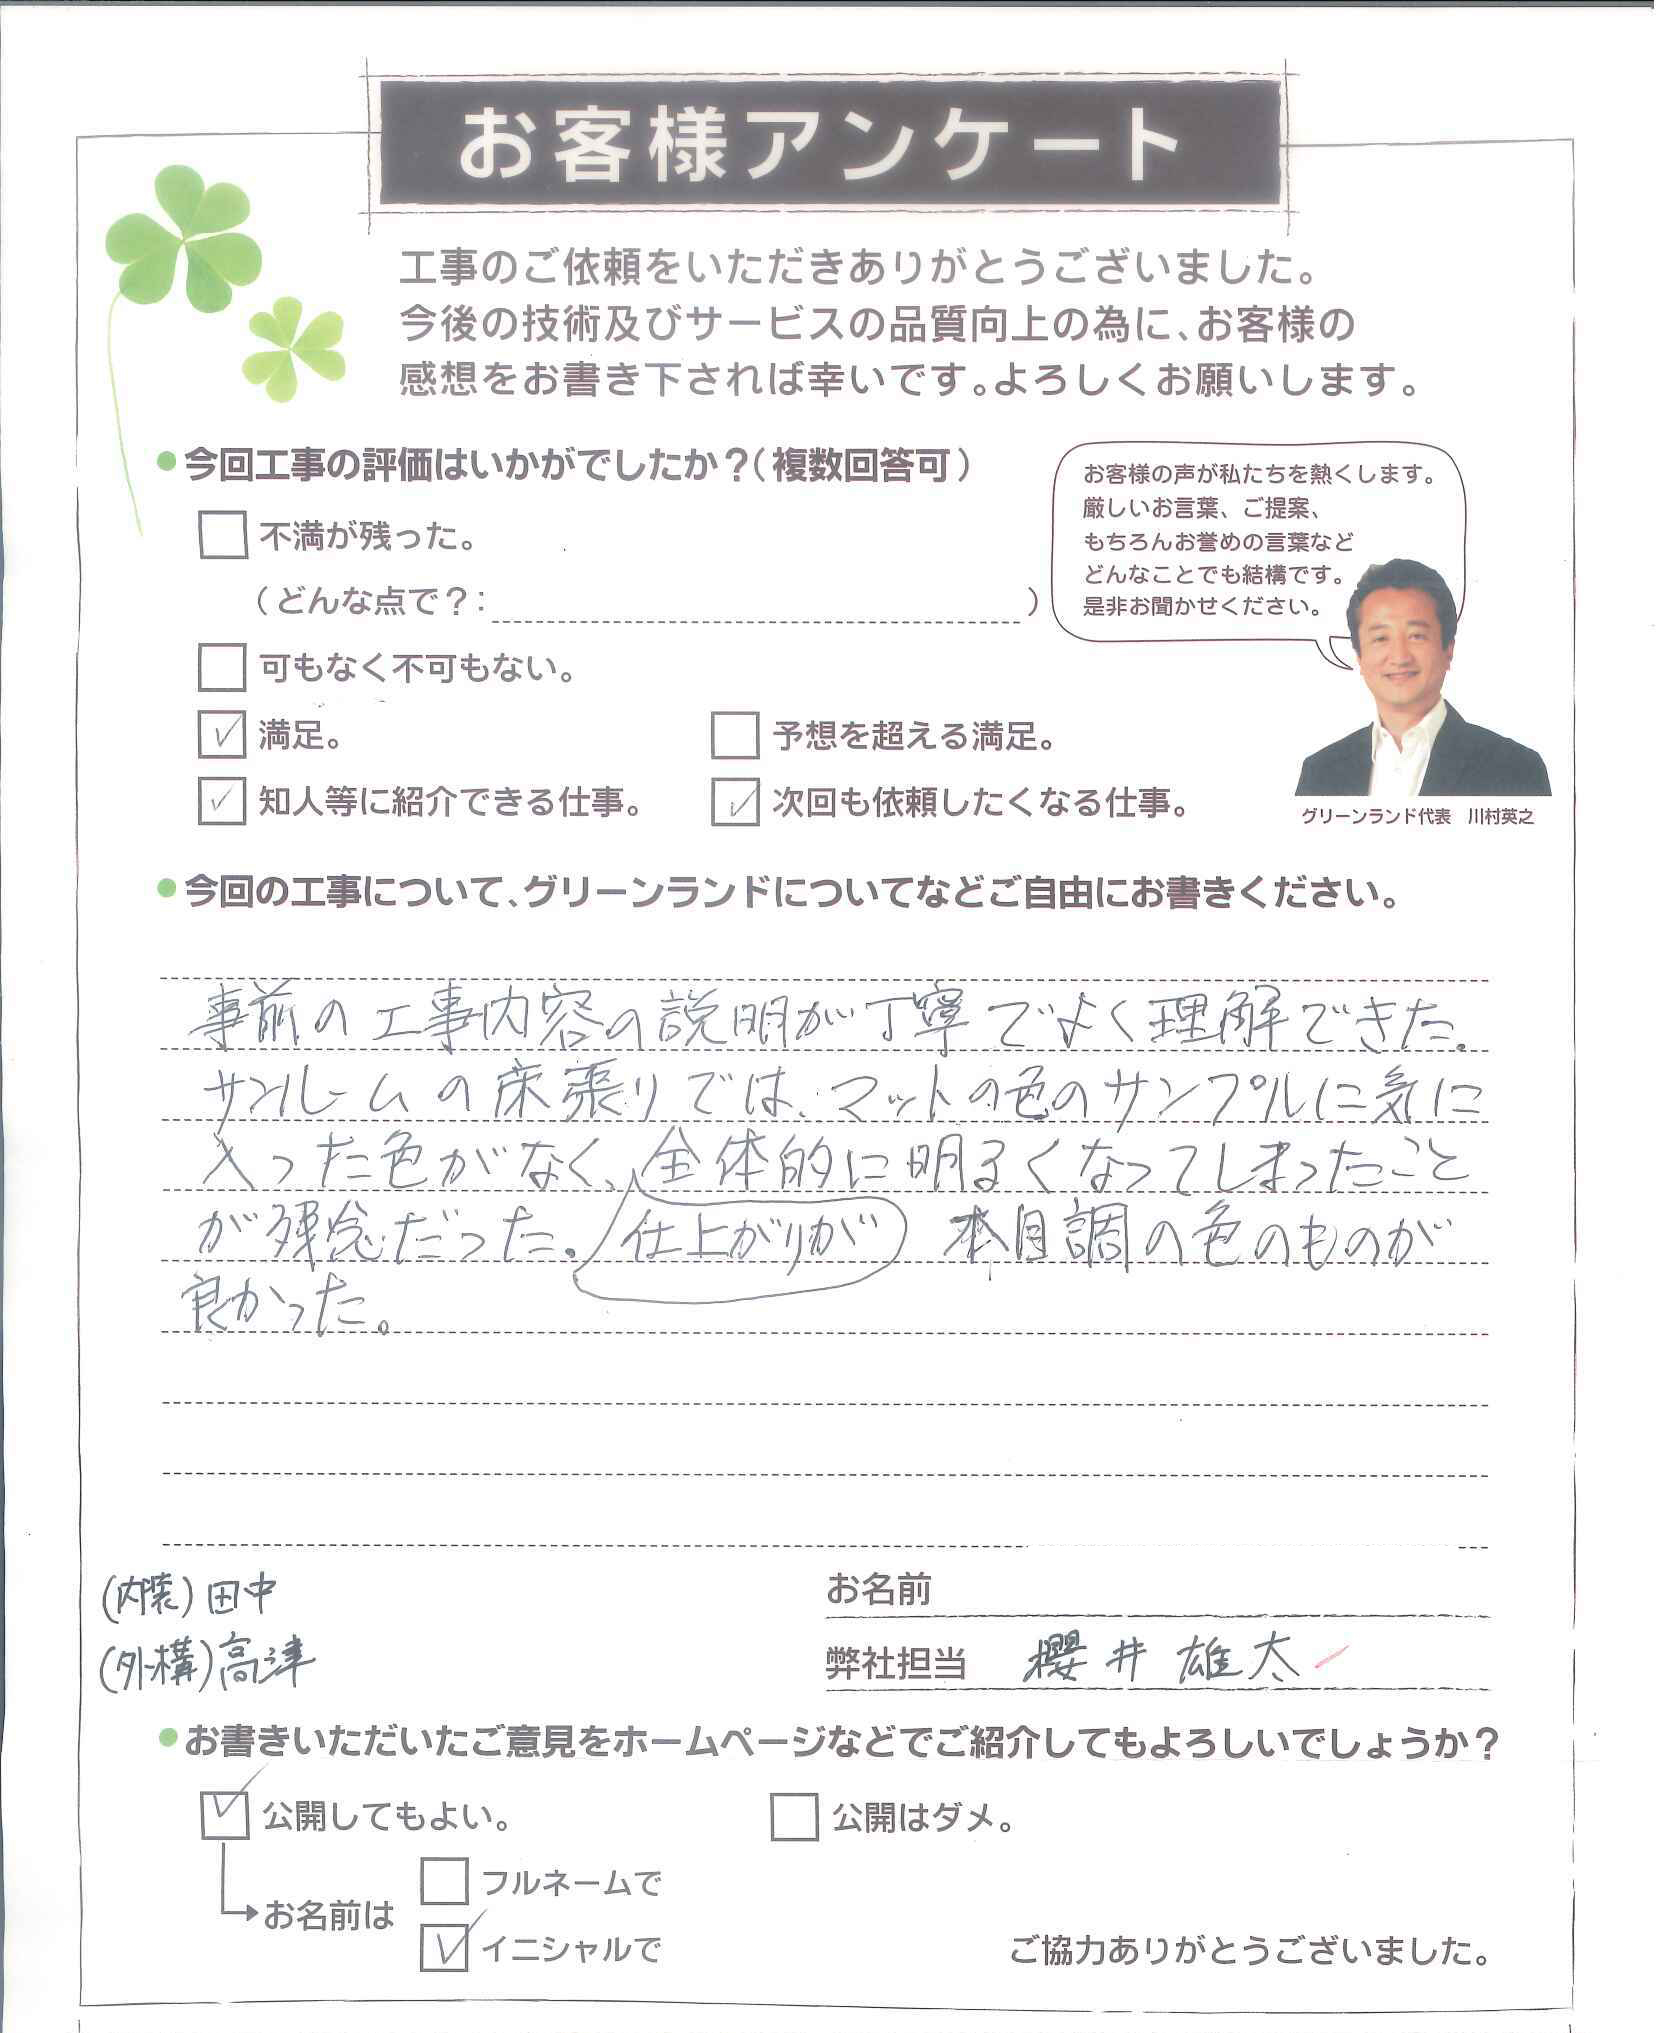 お客様アンケート
工事のご依頼をいただきありがとうございました。
今後の技術及びサービスの品質向上の為に、お客様の
感想をお書き下されば幸いです。よろしくお願いします。
●今回工事の評価はいかがでしたか？（複数回答可）
不満が残った。
（どんな点で？：　）
可もなく不可もない。
満足。
予想を超える満足。
知人等に紹介できる仕事。
次回も依頼したくなる仕事。
お客様の声が私たちを熱くします。
厳しいお言葉、ご提案、
もちろんお誉めの言葉など
どんなことでも結構です。
是非お聞かせください。
グリーンランド代表　川村英之
●今回の工事について、グリーンランドについてなどご自由にお書きください。
事前の工事内容の説明が丁寧でよく理解できた。
サンルームの床張りでは、マットの色のサンプルに気に
入った色がなく、全体的に明るくなってしまったこと
が残念だった。仕上がりが 木目調の色のものが
良かった。
(内装)田中
(外構)高津
お名前
弊社担当　櫻井雄太
●お書きいただいたご意見をホームページなどでご紹介してもよろしいでしょうか？
公開してもよい。
公開はダメ。
お名前は
フルネームで
イニシャルで
ご協力ありがとうございました。